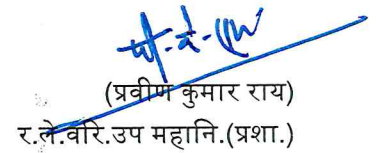 (प्रवीण कुमार राय)
र.ले.वरि.उप महानि.(प्रशा.)